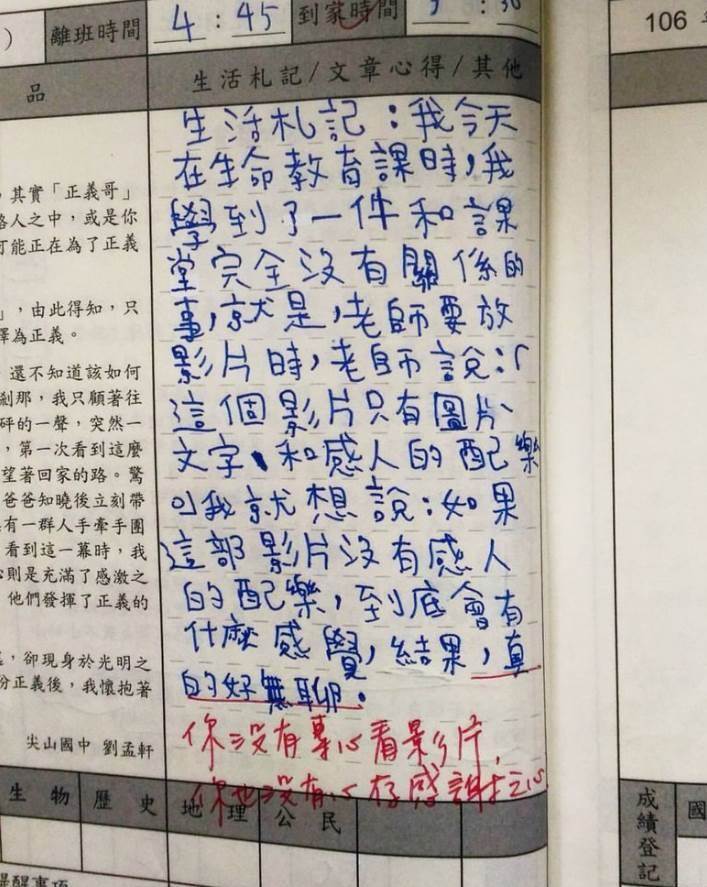 離班時間
4:45
到家時間
106
品
生活札記/文章心得/其他
生活札記:我今天
在生命教育課時,我
學到了一件和課
堂完全沒有關係的
事,就是,老師要放
影片時,老師說:「
這個影片只有圖片、
文字、和感人的配樂
」我就想說:如果
這部影片沒有感人
的配樂,到底會有
什麼感覺,結果,真
的好無聊。
你沒有專心看影片,
你也沒有心存感謝之心
,其實「正義哥」
路人之中,或是你
可能正在為了正義
」,由此得知,只
擇為正義。
還不知道該如何
剎那,我只顧著往
砰的一聲,突然一
,第一次看到這麼
望著回家的路。驚
爸爸知曉後立刻帶
有一群人手牽手團
看到這一幕時,我
則是充滿了感激之
他們發揮了正義的
,卻現身於光明之
份正義後,我懷抱著
尖山國中 劉孟軒
生物
歷史
地理
公民
成績登記
國
提醒事項